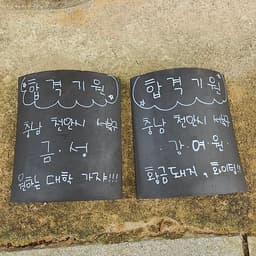 합격기원
충남 천안시 서북구
금·성
원하는 대학 가자!!!
합격기원
충남 천안시 서북구
·강·여원·
황금돼지, 화이팅!!